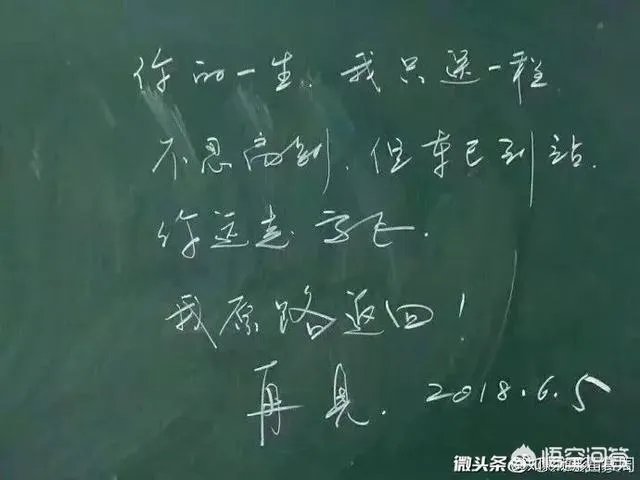 你的一生，我只送一程
不忍离别，但车已到站，
你远走高飞，
我原路返回！
再见。2018.6.5
微头条
悟空问答